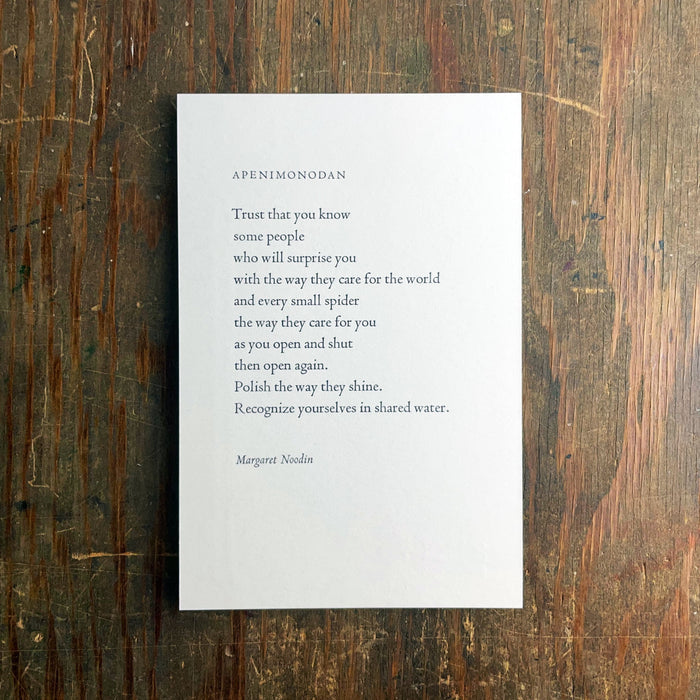 APENIMONODAN
Trust that you know
some people
who will surprise you
with the way they care for the world
and every small spider
the way they care for you
as you open and shut
then open again.
Polish the way they shine.
Recognize yourselves in shared water.
Margaret Noodin